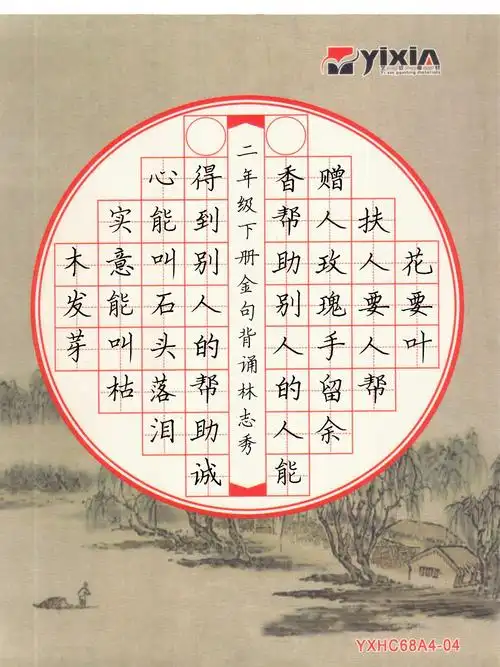 YIXIA
花要叶
扶人要人帮
赠人玫瑰手留余
香帮助别人的人能
二年级下册金句背诵林志秀
得到别人的帮助诚
心能叫石头落泪
实意能叫枯
木发芽
YXHC68A4-04